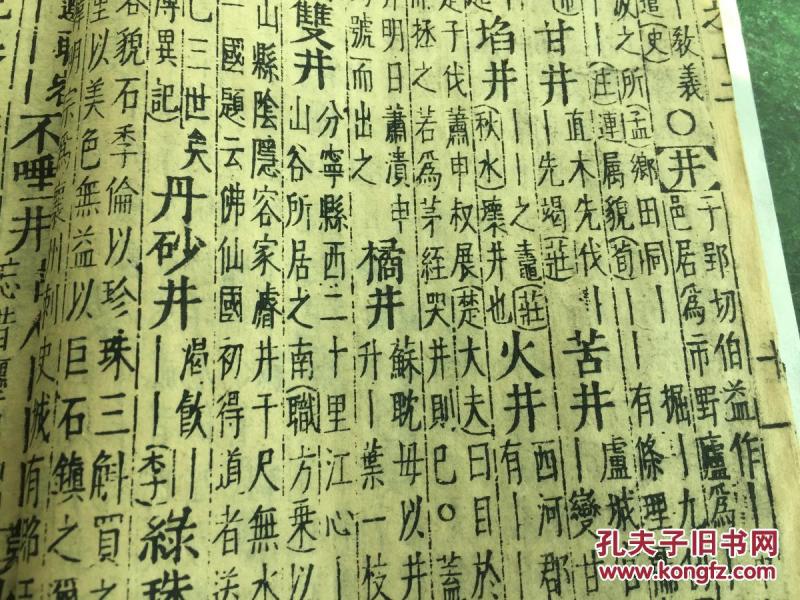 之十二
十一
敎義〇井
子郢切伯益作｜
邑居爲市野廬爲
所(孟)鄉田同｜
｜有條理
(莊)連屬貌(荀)
甘井
直木先伐｜
｜先竭(莊)
苦井
盧城
｜變甘
埳井
｜｜之鼃(莊)
(秋水)壞井也
火井
西河郡
有｜
是子伐蕭申叔展(楚大夫)曰目於
而拯之若爲茅絰哭井則已〇蓋
井明日蕭潰申
號而出之
橘井
蘇耽母以井
升｜葉一枝
雙井
分寧縣西二十里江心｜
山谷所居之南(職方乘)以
山縣陰隱客家濬井千尺無水
國題云佛仙國初得道者送
三世矣
博異記)
丹砂井
渴飮｜
｜｜(李)
綠珠
容貌石季倫以珍珠三斛買之
生以美色無益以巨石鎭之
孔夫子旧书网
www.kongfz.com